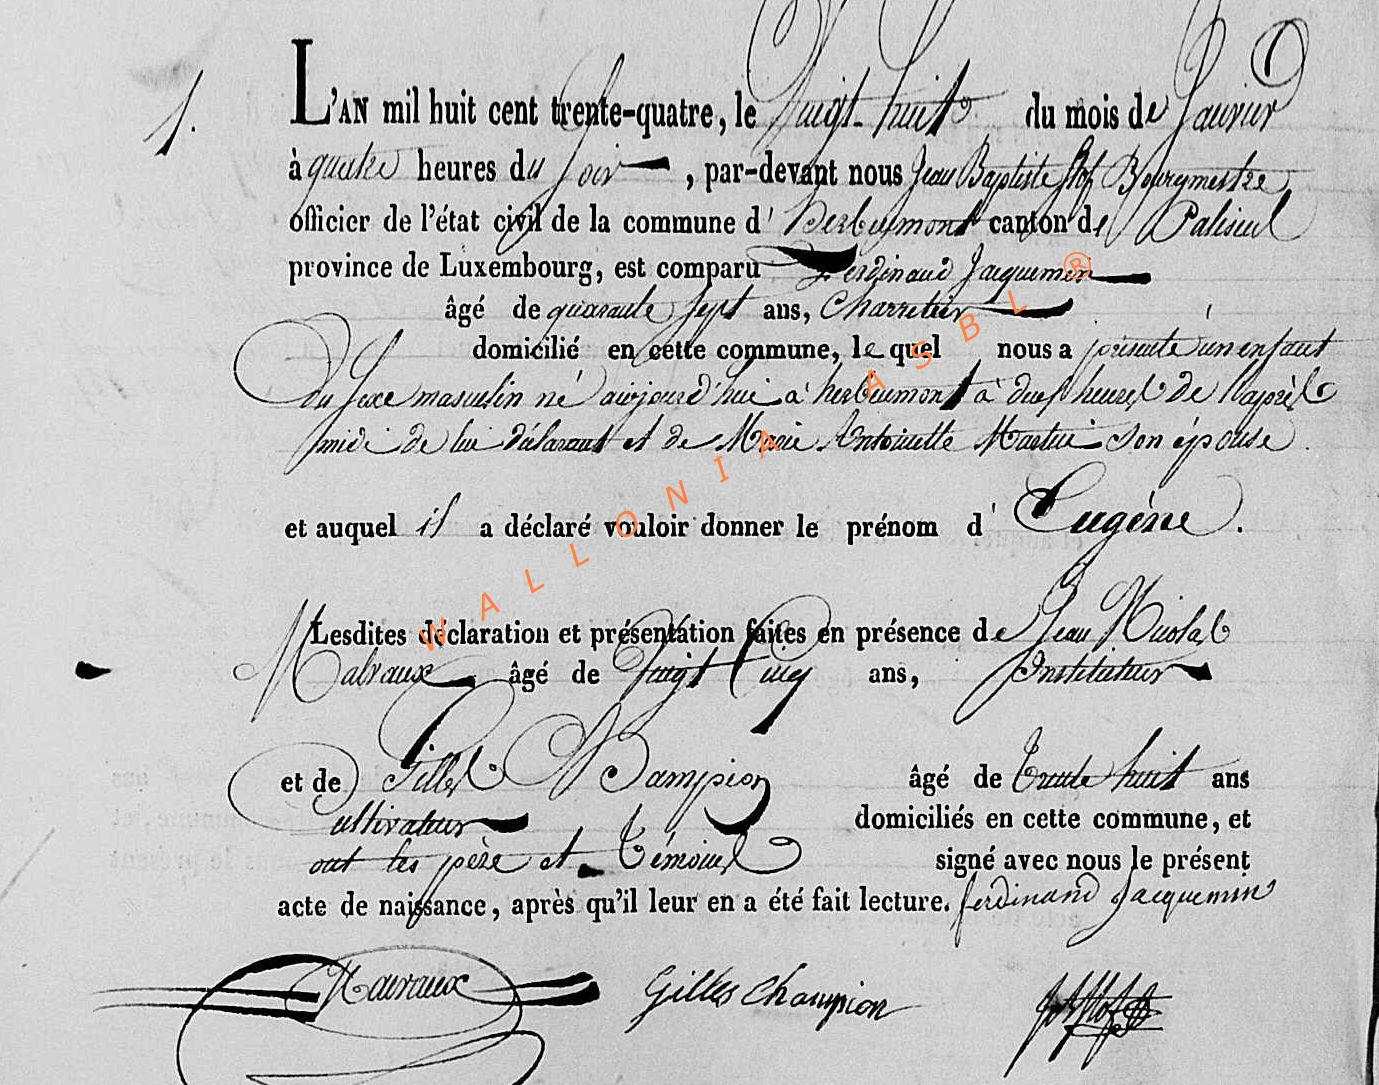 1.
L'AN mil huit cent trente-quatre, le Vingt-huit du mois de Janvier
à quatre heures du Soir, par-devant nous Jean Baptiste Bourgmestre
officier de l'état civil de la commune d'Herbeumont canton de Paliseul
province de Luxembourg, est comparu Ferdinand Jacquemin
âgé de quarante sept ans, Charretier
domicilié en cette commune, le quel nous a présenté un enfant
du Sexe masculin né aujourd'hui à herbeumont à deux heures de l'après
midi de lui déclarant et de Marie Antoinette Martin Son épouse.
et auquel il a déclaré vouloir donner le prénom d'Eugène.
Lesdites déclaration et présentation faites en présence de Jean Nicolas
Malvaux âgé de Vingt Cinq ans, Instituteur
et de Gilles Champion âgé de Trente huit ans
Cultivateur domiciliés en cette commune, et
ont les père et Témoins signé avec nous le présent
acte de naissance, après qu'il leur en a été fait lecture. ferdinand Jacquemin
Gilles Champion
WALLONIA ASBL ®